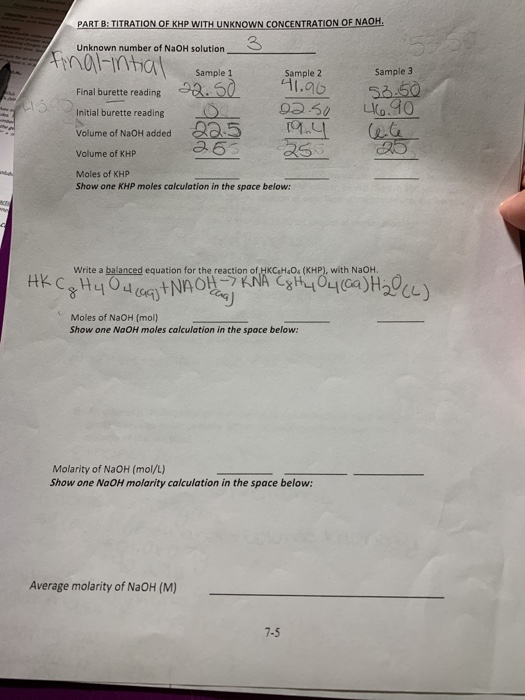 PART B: TITRATION OF KHP WITH UNKNOWN CONCENTRATION OF NAOH.
Unknown number of NaOH solution 3
Final-intial
Sample 1 Sample 2 Sample 3
Final burette reading 22.50 41.90 53.50
Initial burette reading 0 22.50 46.90
Volume of NaOH added 22.5 19.4 6.6
Volume of KHP 25 25 25
Moles of KHP
Show one KHP moles calculation in the space below:
Write a balanced equation for the reaction of HKC₈H₄O₄ (KHP), with NaOH.
HKC₈H₄O₄(aq)+NAOH(aq)→KNA C₈H₄O₄(aq)H₂O(L)
Moles of NaOH (mol)
Show one NaOH moles calculation in the space below:
Molarity of NaOH (mol/L)
Show one NaOH molarity calculation in the space below:
Average molarity of NaOH (M)
7-5